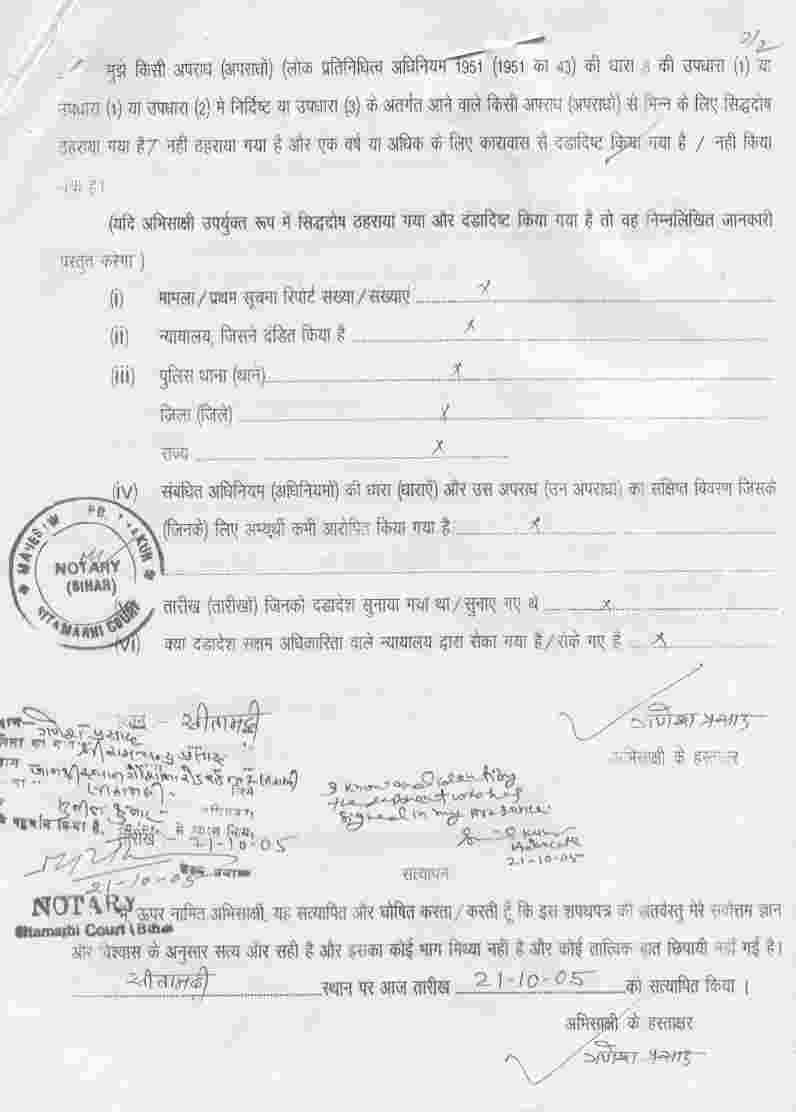 2/2
मुझे किसी अपराध (अपराधों) (लोक प्रतिनिधित्व अधिनियम 1951 (1951 का 43) की धारा 8 की उपधारा (1) या
उपधारा (1) या उपधारा (2) मे निर्दिष्ट या उपधारा (3) के अतंर्गत आने वाले किसी अपराध (अपराधो) से भिन्न के लिए सिद्धदोष
ठहराया गया है / नही ठहराया गया है और एक वर्ष या अधिक के लिए कारावास से दडादिष्ट किया गया है / नही किया
गया है।
(यदि अभिसाक्षी उपर्युक्त रूप में सिद्धदोष ठहराया गया और दंडादिष्ट किया गया है तो वह निम्नलिखित जानकारी
प्रस्तुत करेगा )
(i) मामला / प्रथम सूचना रिपोर्ट संख्या / संख्याएं x
(ii) न्यायालय, जिसने दंडित किया है x
(iii) पुलिस थाना (थाने) x
जिला (जिले) x
राज्य x
(iv) संबंधित अधिनियम (अधिनियमों) की धारा (धाराएँ) और उस अपराध (उन अपराधों) का संक्षिप्त विवरण जिसके
(जिनके) लिए अभ्यर्थी कभी आरोपित किया गया है x
NOTARY
(BIHAR)
SITAMARHI COURT
तारीख (तारीखों) जिनको दडादेश सुनाया गया था / सुनाए गए थे x
(vi) क्या दडादेश सक्षम अधिकारिता वाले न्यायालय द्वारा रोका गया है / रोके गए है x
सीतामढ़ी
गणेश प्रसाद
गणेश प्रसाद
अभिसाक्षी के हस्ताक्षर
I know and identify
the deponent who has
signed in my presence.
Advocate
21-10-05
21-10-05
21-10-05
सत्यापन
NOTARY
Sitamarhi Court (Bihar
मैं ऊपर नामित अभिसाक्षी, यह सत्यापित और घोषित करता / करती हूँ कि इस शपथपत्र की अंतर्वस्तु मेरे सर्वोत्तम ज्ञान
और विश्वास के अनुसार सत्य और सही है और इसका कोई भाग मिथ्या नही है और कोई तात्विक बात छिपायी नहीं गई है।
सीतामढ़ी स्थान पर आज तारीख 21-10-05 को सत्यापित किया ।
अभिसाक्षी के हस्ताक्षर
गणेश प्रसाद